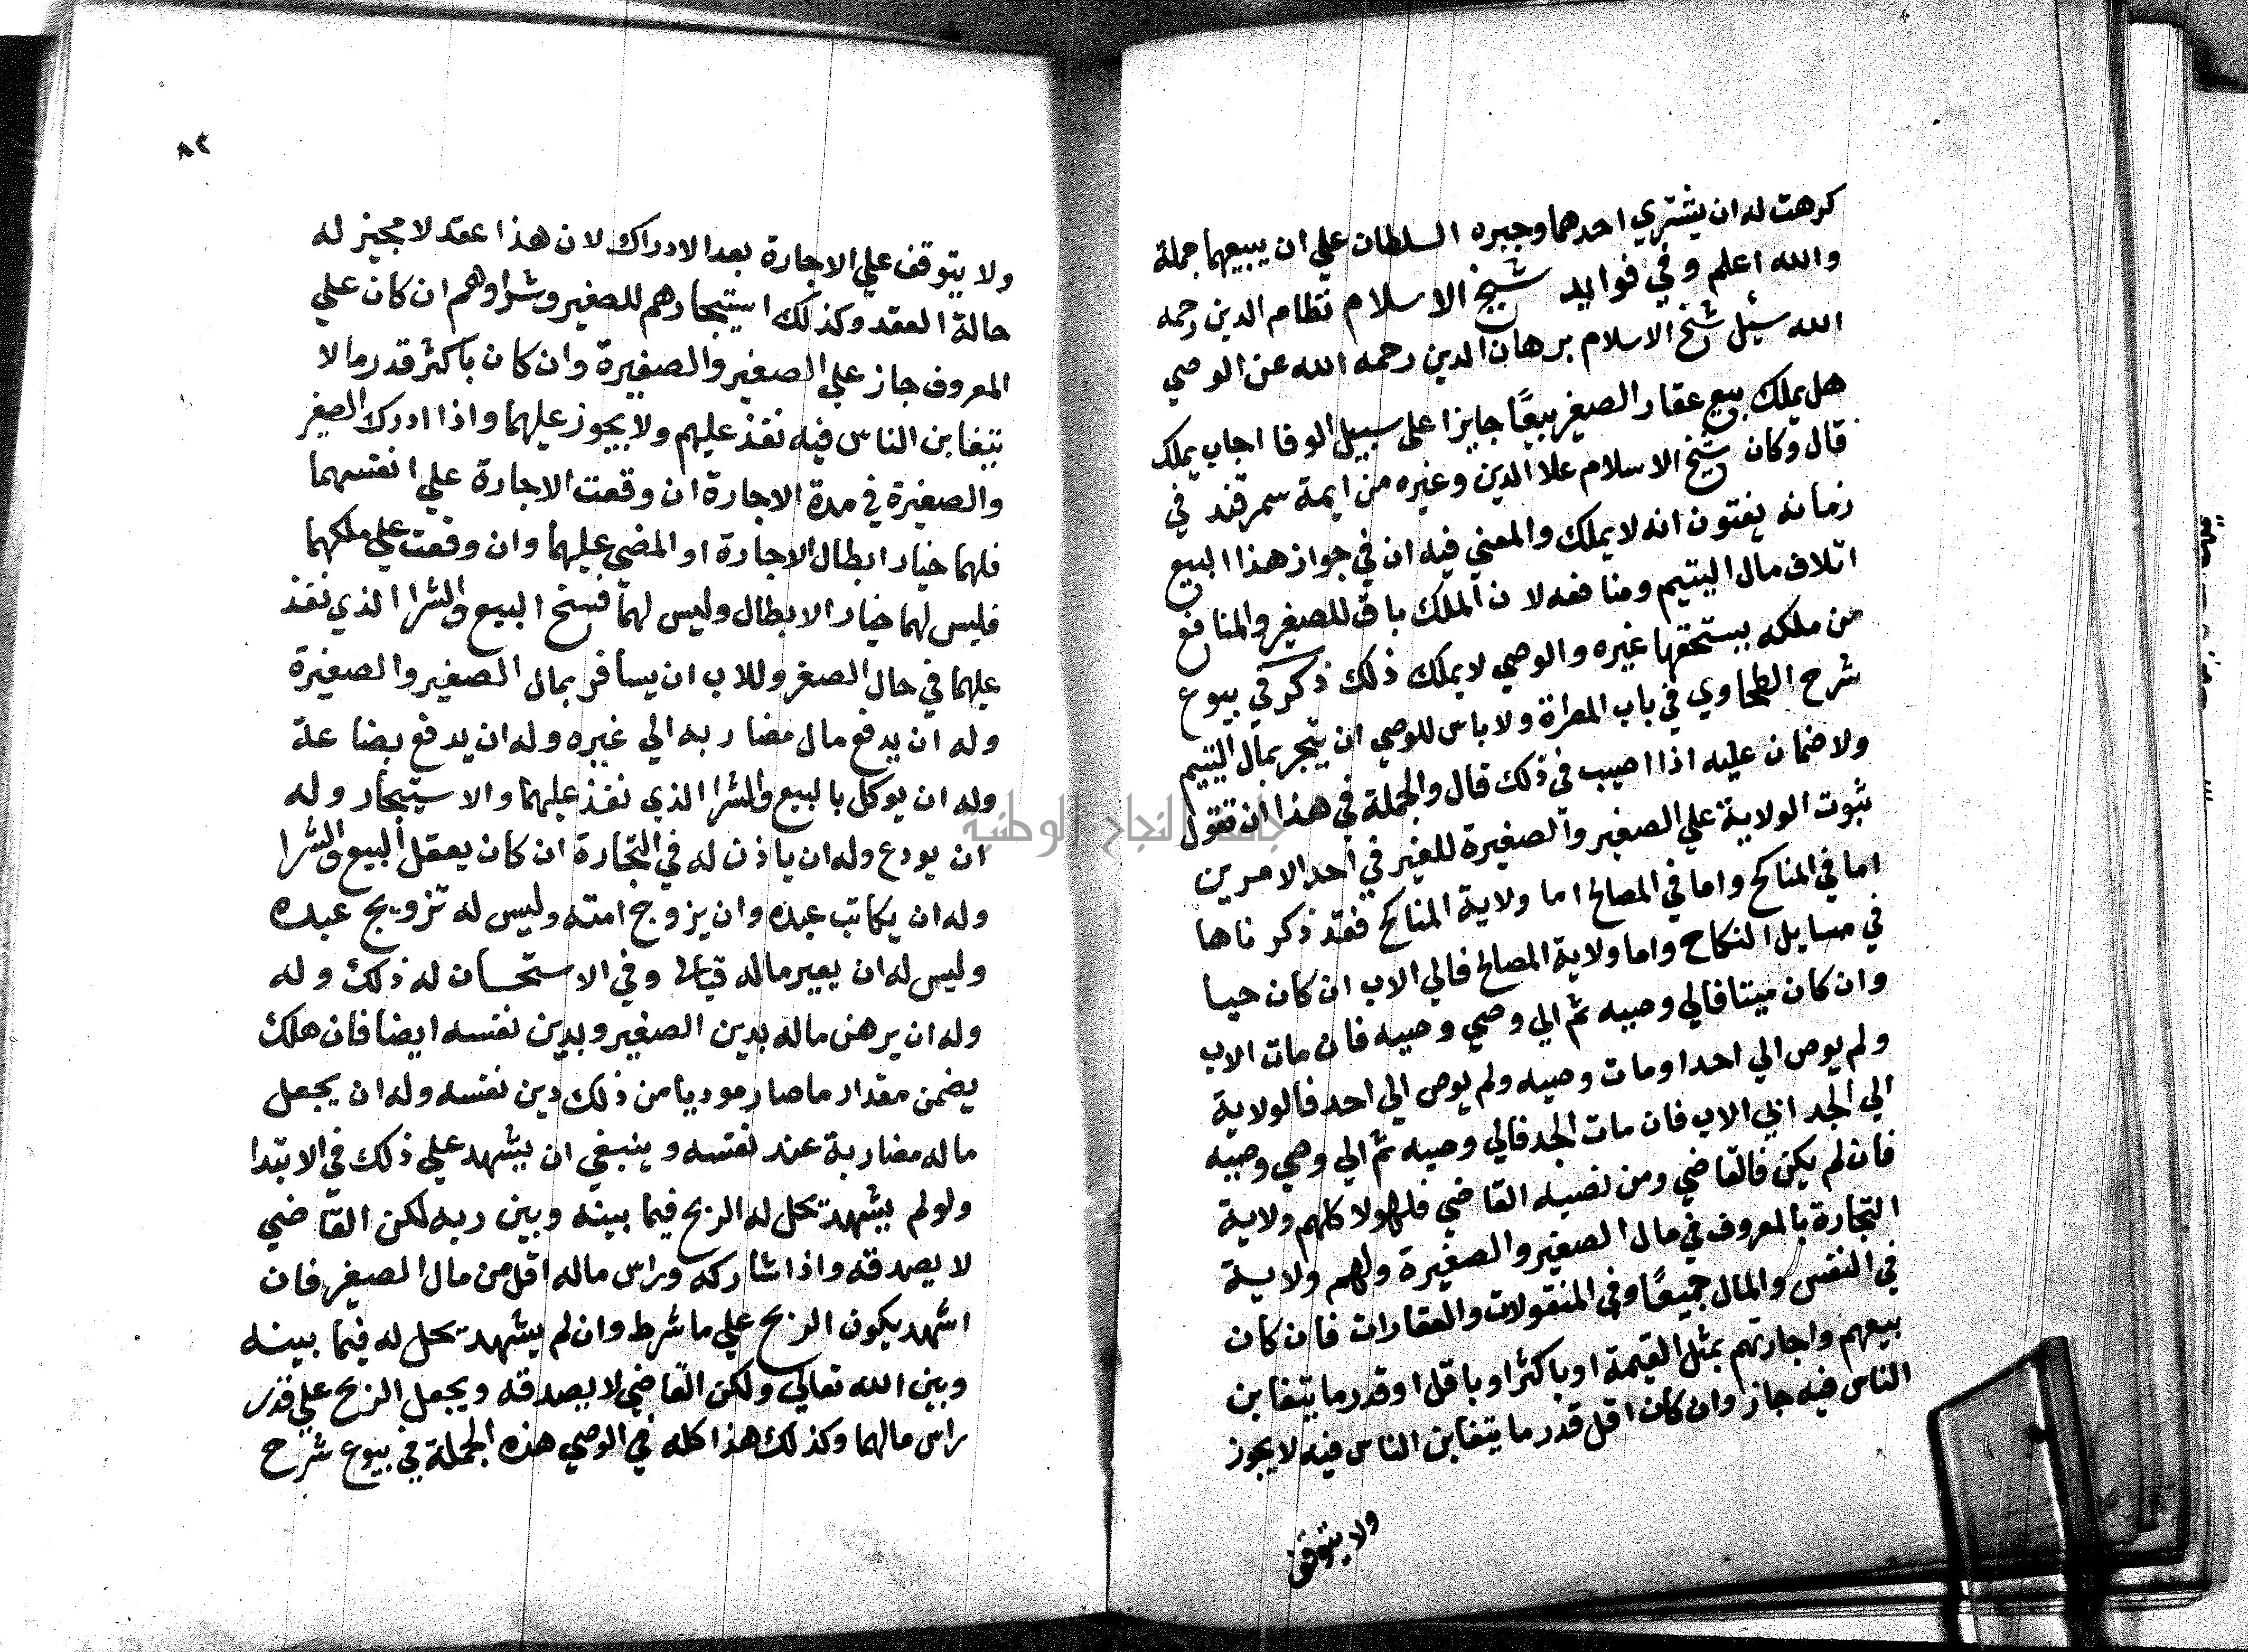 كرهت له ان يشتري احدهما وجبره السلطان علي ان يبيعهما جملة
والله اعلم وفي فوايد شيخ الاسلام نظام الدين رحمه
الله سئل شيخ الاسلام برهان الدين رحمه الله عن الوصي
هل يملك بيع عقار الصغير بيعًا جايزا على سبيل الوفا اجاب يملك
قال وكان شيخ الاسلام علا الدين وغيره من ايمة سمرقند في
زمانه يفتون انه لا يملك والمعني فيه ان في جواز هذا البيع
اتلاف مال اليتيم ومنافعه لان الملك باق للصغير والمنافع
من ملكه يستحقها غيره والوصي لا يملك ذلك ذكر في بيوع
شرح الطحاوي في باب المصراة ولا باس للوصي ان يتجر بمال اليتيم
ولا ضمان عليه اذا اصيب في ذلك قال والجملة في هذا ان نقول
ثبوت الولاية علي الصغير والصغيرة للغير في احد الامرين
اما في المناكح واما في المصالح اما ولاية المناكح فقد ذكرناها
في مسايل النكاح واما ولاية المصالح فالي الاب ان كان حيا
وان كان ميتا فالي وصيه ثم الي وصي وصيه فان مات الاب
ولم يوص الي احد او مات وصيه ولم يوص الي احد فالولاية
الي الجد ابي الاب فان مات الجد فالي وصيه ثم الي وصي وصيه
فان لم يكن فالقاضي ومن نصبه القاضي فلهولا كلهم ولاية
التجارة بالمعروف في مال الصغير والصغيرة ولهم ولاية
في النفس والمال جميعًا وفي المنقولات والعقارات فان كان
بيعهم واجارتهم بمثل القيمة او باكثر او باقل او قدر ما يتغابن
الناس فيه جاز وان كان اقل قدر ما يتغابن الناس فيه لا يجوز
ولا يتوقف
٨٢
ولا يتوقف علي الاجارة بعد الادراك لان هذا عقد لا مجيز له
حالة العقد وكذلك استيجارهم للصغير وشراوهم ان كان علي
المعروف جاز علي الصغير والصغيرة وان كان باكثر قدر ما لا
يتغابن الناس فيه نفذ عليهم ولا يجوز عليهما واذا ادرك الصغير
والصغيرة في مدة الاجارة ان وقعت الاجارة علي انفسهما
فلهما خيار ابطال الاجارة او المضي عليهما وان وقعت علي ملكهما
فليس لهما خيار الابطال وليس لهما فسخ البيع والشرا الذي نفذ
عليهما في حال الصغر وللاب ان يسافر بمال الصغير والصغيرة
وله ان يدفع مال مضاربه الي غيره وله ان يدفع بضاعة
وله ان يوكل بالبيع والشرا الذي نفذ عليهما والاستيجار وله
ان يودع وله ان ياذن له في التجارة ان كان يعقل البيع والشرا
وله ان يكاتب عبده وان يزوج امته وليس له تزويج عبده
وليس له ان يعير ماله قياسا وفي الاستحسان له ذلك وله
وله ان يرهن ماله بدين الصغير وبدين نفسه ايضا فان هلك
يضمن مقدار ما صار موديا من ذلك دين نفسه وله ان يجعل
ماله مضاربة عند نفسه وينبغي ان يشهد علي ذلك في الابتدا
ولو لم يشهد يحل له الربح فيما بينه وبين ربه لكن القاضي
لا يصدقه واذا شاركه وراس ماله اقل من مال الصغير فان
اشهد يكون الربح علي ما شرط وان لم يشهد يحل له فيما بينه
وبين الله تعالي ولكن القاضي لا يصدقه ويجعل الربح علي قدر
راس مالهما وكذلك هذا كله في الوصي هذه الجملة في بيوع شرح
جامعة النجاح الوطنية